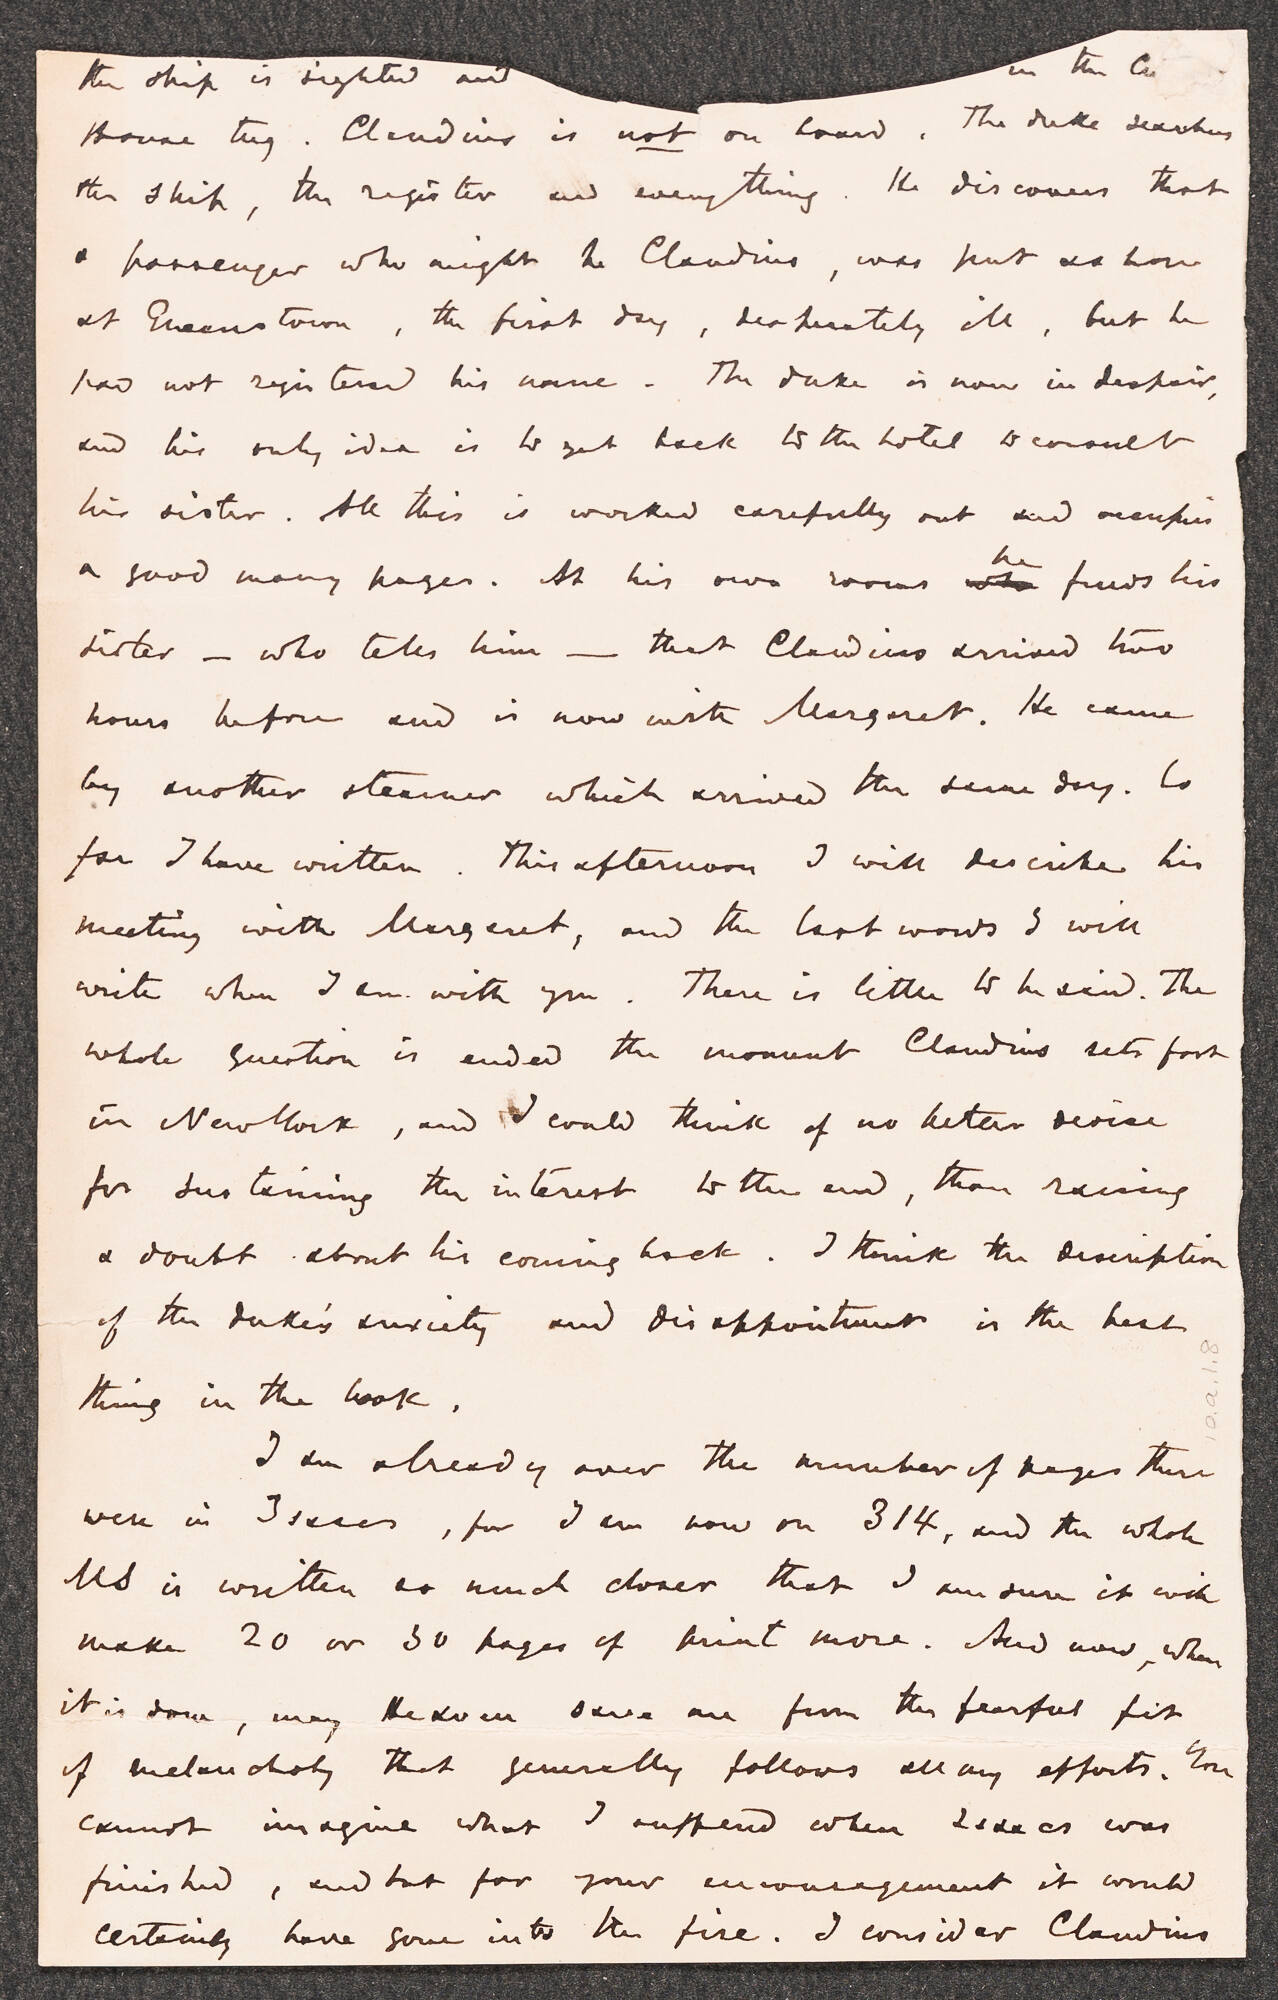 the ship is sighted and in the Cu
House tug. Claudius is not on board. The duke searches
the ship, the register and everything. He discovers that
a passenger who might be Claudius, was put ashore
at Queenstown, the first day, desperately ill, but he
had not registered his name. The duke is now in despair,
and his only idea is to get back to the hotel to consult
his sister. All this is worked carefully out and occupies
a good many pages. At his own rooms he finds his
sister — who tells him — that Claudius arrived two
hours before and is now with Margaret. He came
by another steamer which arrived the same day. So
far I have written. This afternoon I will describe his
meeting with Margaret, and the last words I will
write when I am with you. There is little to be said. The
whole question is ended the moment Claudius sets foot
in New York, and I could think of no better device
for sustaining the interest to the end, than raising
a doubt about his coming back. I think the description
of the duke's anxiety and disappointment is the best
thing in the book.
I am already over the number of pages there
were in Isaacs, for I am now on 314, and the whole
MS is written so much closer that I am sure it will
make 20 or 30 pages of print more. And now, when
it is done, may Heaven save me from the fearful fit
of melancholy that generally follows all my efforts. You
cannot imagine what I suffered when Isaacs was
finished, and but for your encouragement it would
certainly have gone into the fire. I consider Claudius
10.a.1.8